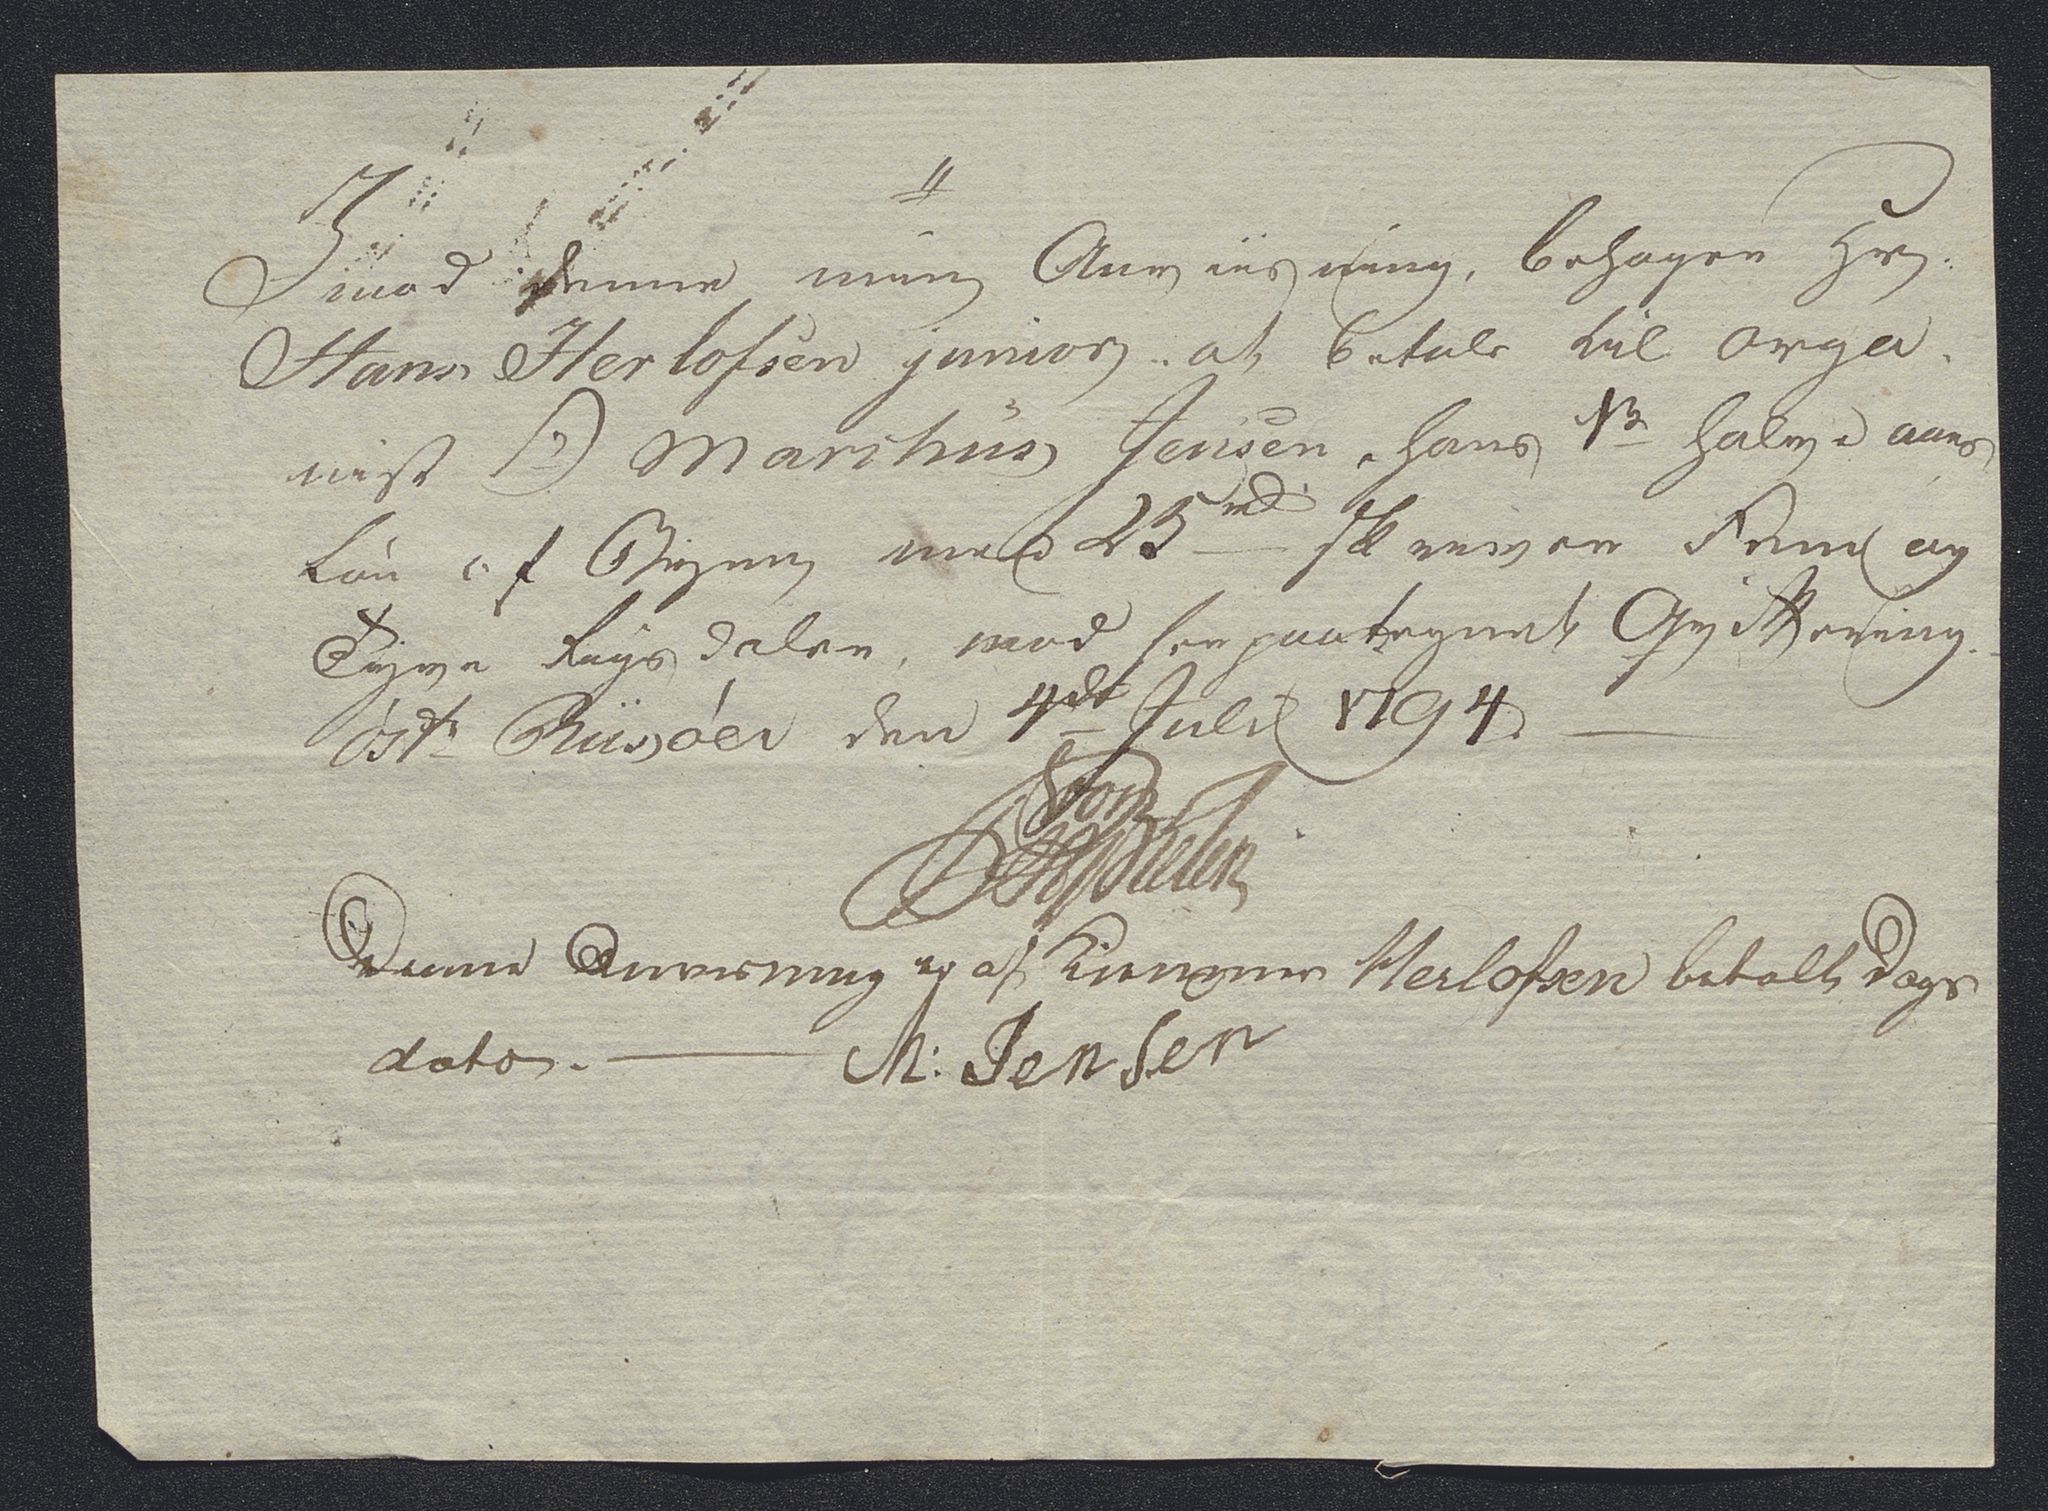 Imod denne min Anviisning, behager Hr.
Hans Herlofsen junior. at betale til orga-
nist Marchus Jensen, hans 1ste halve aars
Løn af Byen med 25 rd skriver Fem og
Tyve Rigsdaler, mod herpaategnet Qvittering.
Østr Riisøer den 4de Julii 1794.
Denne Anvisning er af Kiemner Herlofsen betalt Dags
dato. M: Jensen